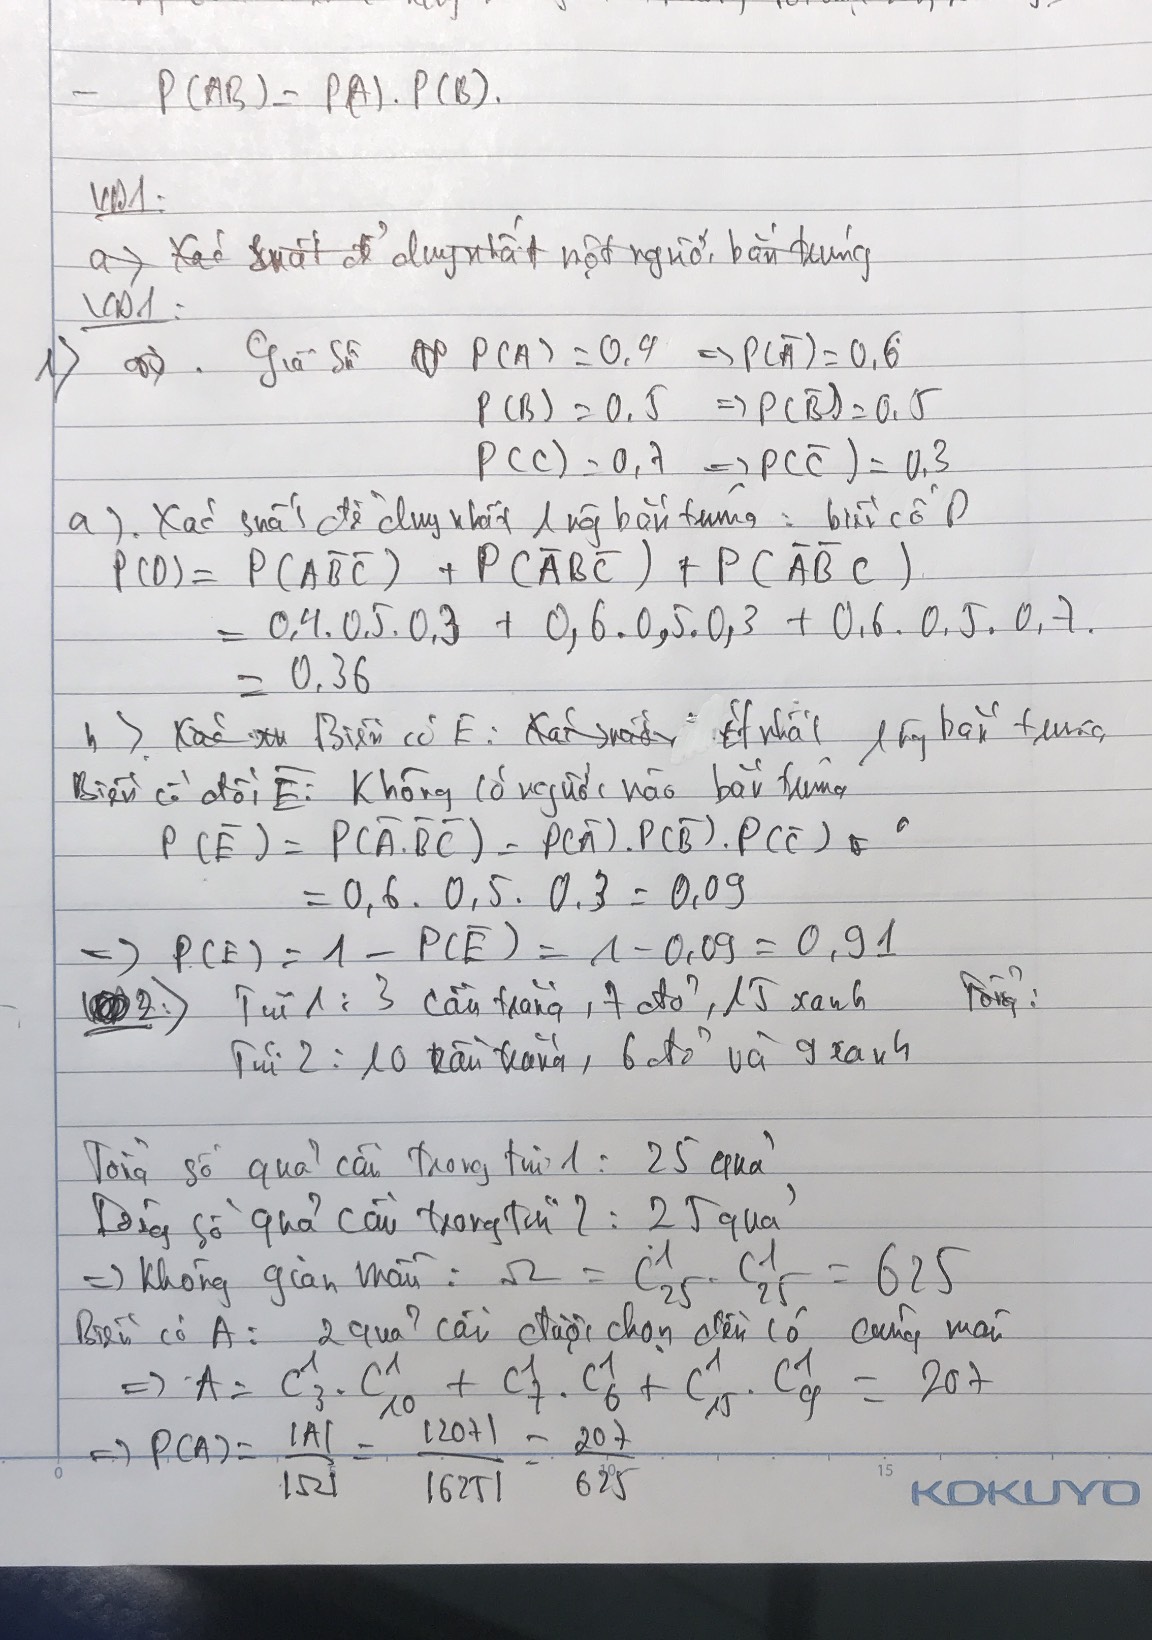 - P(AB) = P(A). P(B).
VD1:
a) Xác suất để duy nhất một người bắn trúng
VD1:
1) . Giả sử P(A) = 0,4 => P(Ā) = 0,6
P(B) = 0,5 => P(B̄) = 0,5
P(C) = 0,7 => P(C̄) = 0,3
a). Xác suất để duy nhất 1 ng bắn trúng : biến cố D
P(D) = P(AB̄C̄) + P(ĀBC̄) + P(ĀB̄C)
= 0,4. 0,5. 0,3 + 0,6. 0,5. 0,3 + 0,6. 0,5. 0,7.
= 0,36
b) Biến cố E: Ít nhất 1 ng bắn trúng
Biến cố đối Ē: Không có người nào bắn trúng
P(Ē) = P(Ā.B̄C̄) = P(Ā).P(B̄).P(C̄)
= 0,6. 0,5. 0,3 = 0,09
=> P(E) = 1 - P(Ē) = 1 - 0,09 = 0,91
2) Túi 1: 3 cầu trắng, 7 đỏ, 15 xanh Tổng:
Túi 2: 10 cầu trắng, 6 đỏ và 9 xanh
Tổng số quả cầu trong túi 1: 25 quả
Tổng số quả cầu trong túi 2: 25 quả
=> Không gian mẫu: Ω = C¹₂₅. C¹₂₅ = 625
Biến cố A: 2 quả cầu được chọn đều có cùng màu
=> A = C¹₃. C¹₁₀ + C¹₇. C¹₆ + C¹₁₅. C¹₉ = 207
=> P(A) = |A|/|Ω| = |207|/|625| = 207/625
0 10 15
KOKUYO